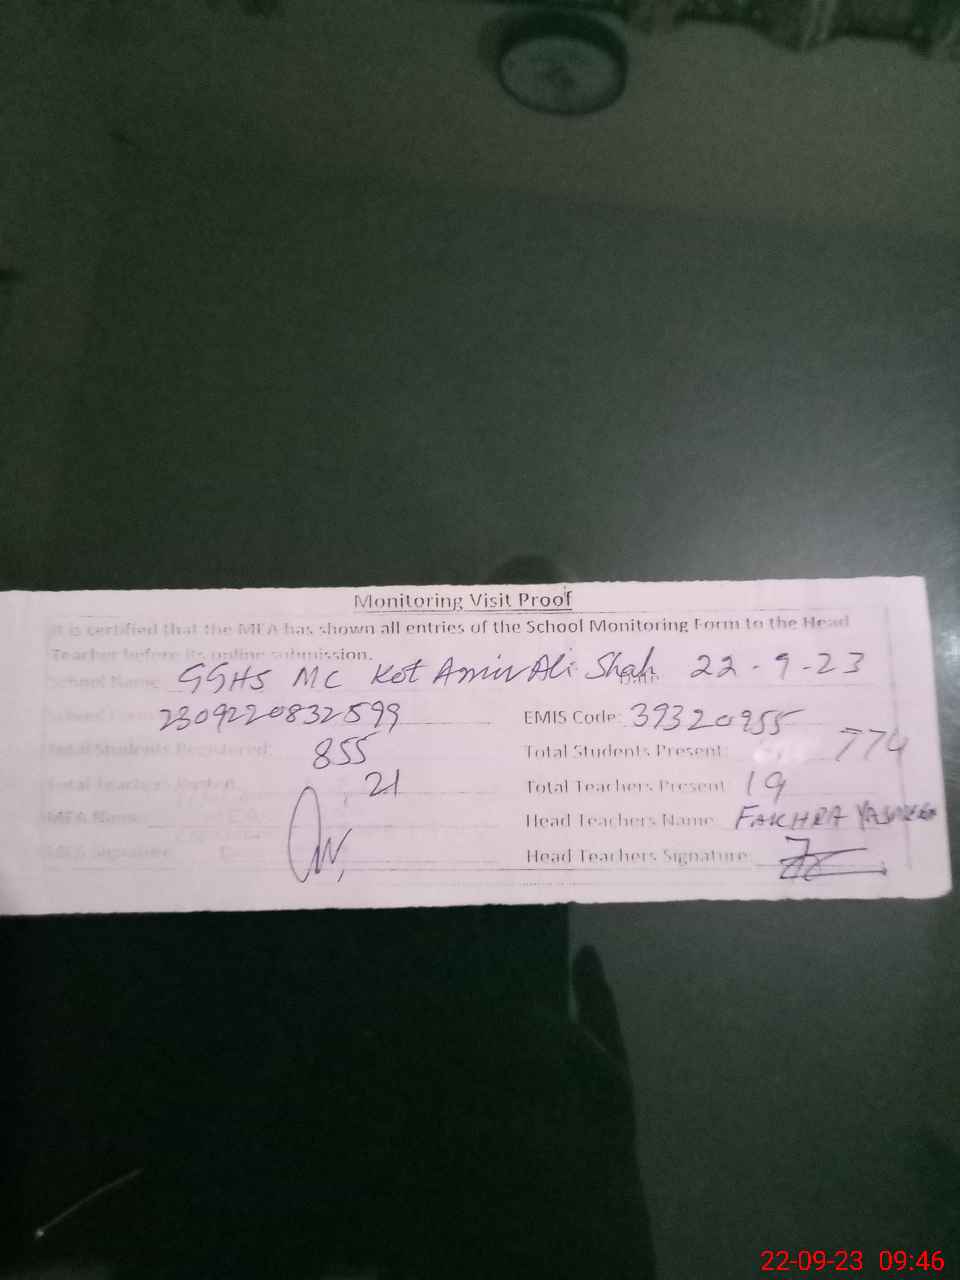 Monitoring Visit Proof
It is certified that the MEA has shown all entries of the School Monitoring Form to the Head
Teacher before its online submission.
School Name GGHS MC Kot Amir Ali Shah Date 22-9-23
2309220832599 EMIS Code: 39320955
Total Students Registered: 855 Total Students Present: 774
Total Teachers 21 Total Teachers Present 19
MEA Name Head Teachers Name: FAKHRA YASMEEN
MEA Signature Head Teachers Signature:
22-09-23 09:46